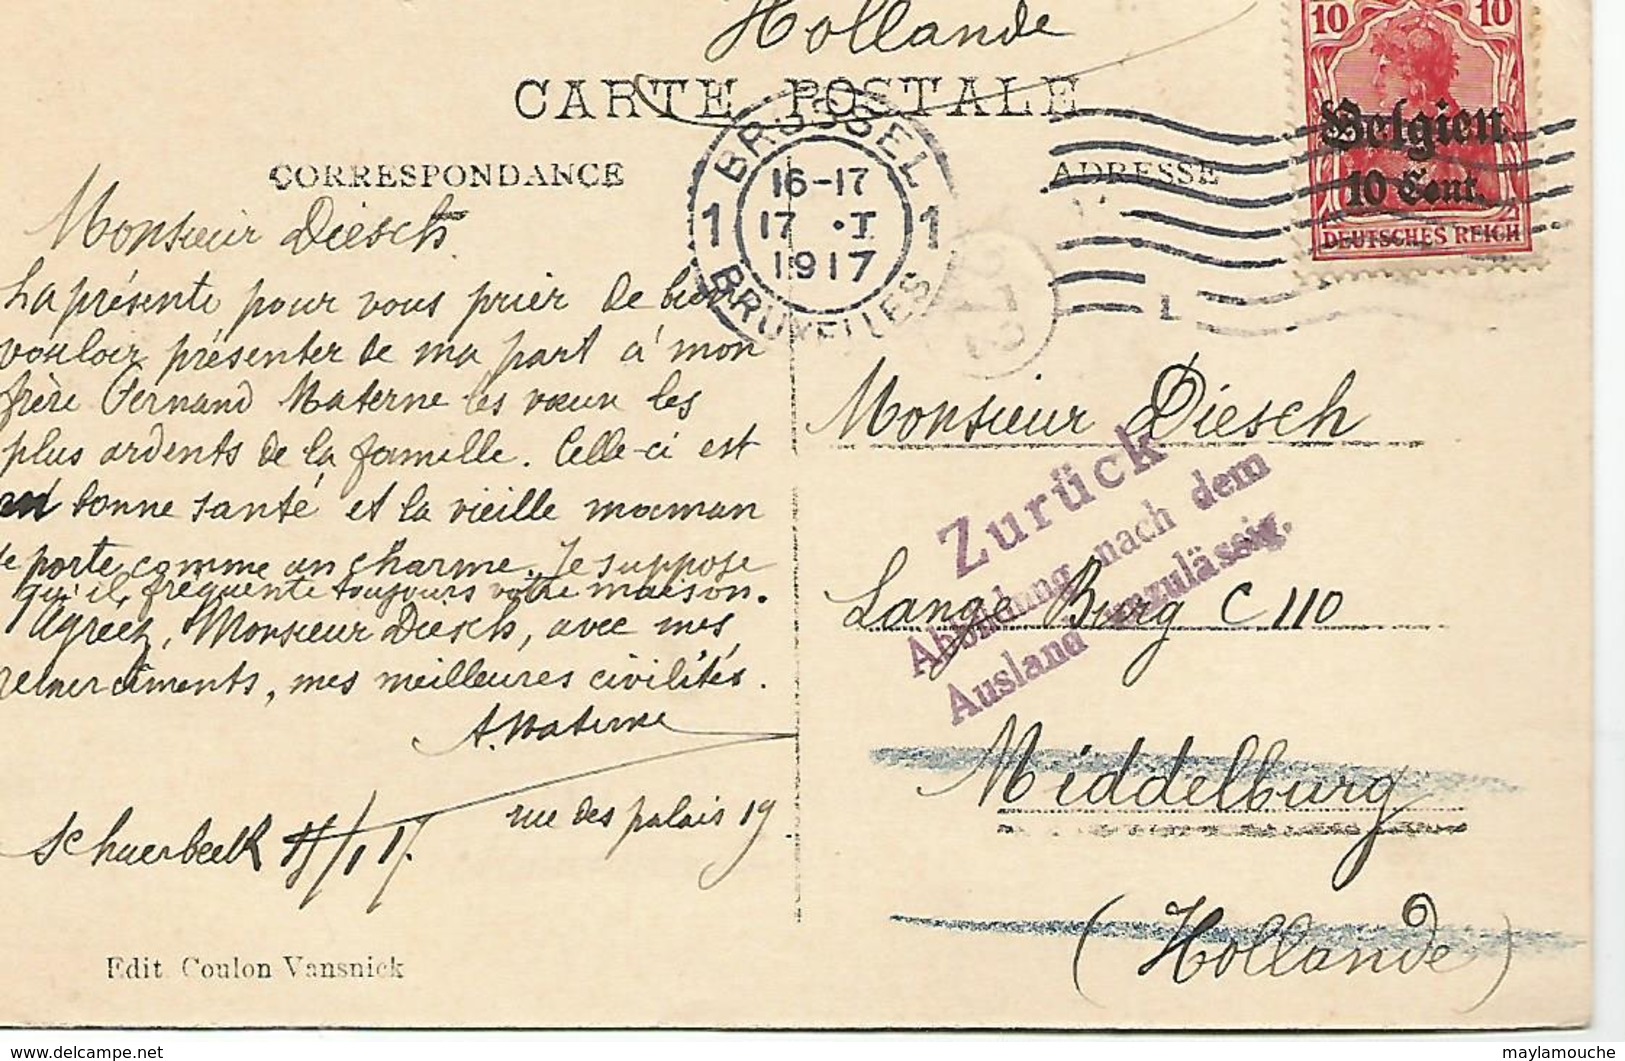 Hollande
CARTE POSTALE
CORRESPONDANCE
ADRESSE
BRUSSEL
1 16-17 1
17 ·I
1917
BRUXELLES
10 10
Belgien
10 Cent.
DEUTSCHES REICH
L
Monsieur Diesch
La présente pour vous prier de bien
vouloir présenter de ma part à mon
frère Fernand Materne les vœux les
plus ardents de la famille. Celle-ci est
en bonne santé et la vieille maman
se porte comme un charme. Je suppose
qu'il fréquente toujours votre maison.
Agréez, Monsieur Diesch, avec mes
remerciments, mes meilleures civilités.
A. Materne
rue des palais 19
Schaerbeek
Edit Coulon Vansnick
Monsieur Diesch
Lange Burg C 110
Middelburg
(Hollande)
Zurück
Abbildung nach dem
Ausland unzulässig.
delcampe.net
maylamouche